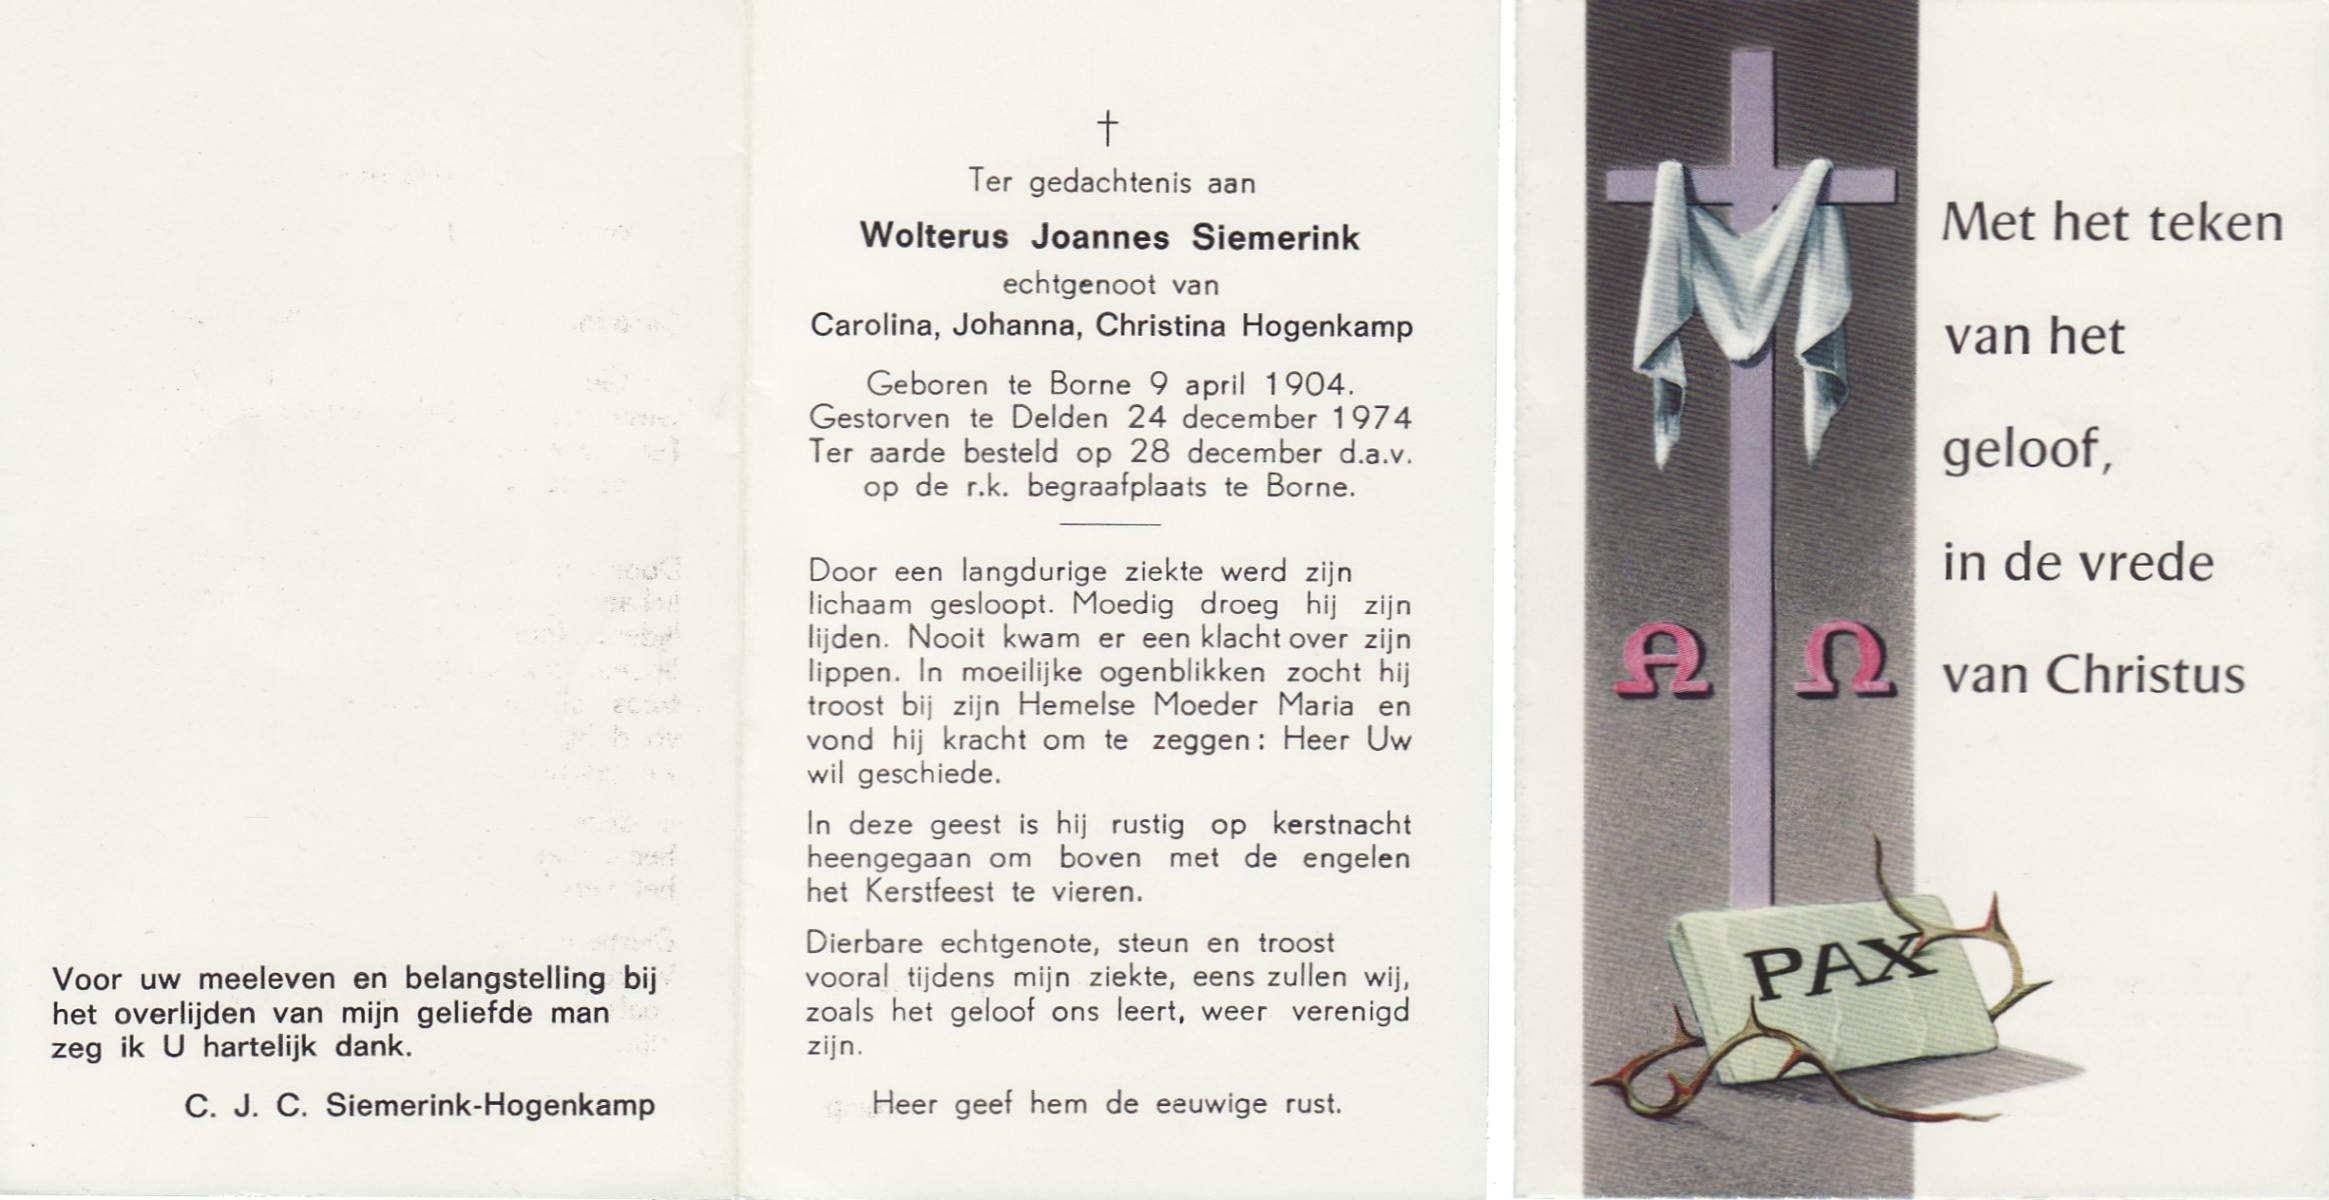 Voor uw meeleven en belangstelling bij
het overlijden van mijn geliefde man
zeg ik U hartelijk dank.
C. J. C. Siemerink-Hogenkamp
Ter gedachtenis aan
Wolterus Joannes Siemerink
echtgenoot van
Carolina, Johanna, Christina Hogenkamp
Geboren te Borne 9 april 1904.
Gestorven te Delden 24 december 1974
Ter aarde besteld op 28 december d.a.v.
op de r.k. begraafplaats te Borne.
Door een langdurige ziekte werd zijn
lichaam gesloopt. Moedig droeg hij zijn
lijden. Nooit kwam er een klacht over zijn
lippen. In moeilijke ogenblikken zocht hij
troost bij zijn Hemelse Moeder Maria en
vond hij kracht om te zeggen: Heer Uw
wil geschiede.
In deze geest is hij rustig op kerstnacht
heengegaan om boven met de engelen
het Kerstfeest te vieren.
Dierbare echtgenote, steun en troost
vooral tijdens mijn ziekte, eens zullen wij,
zoals het geloof ons leert, weer verenigd
zijn.
Heer geef hem de eeuwige rust.
Met het teken
van het
geloof,
in de vrede
van Christus
Α Ω
PAX